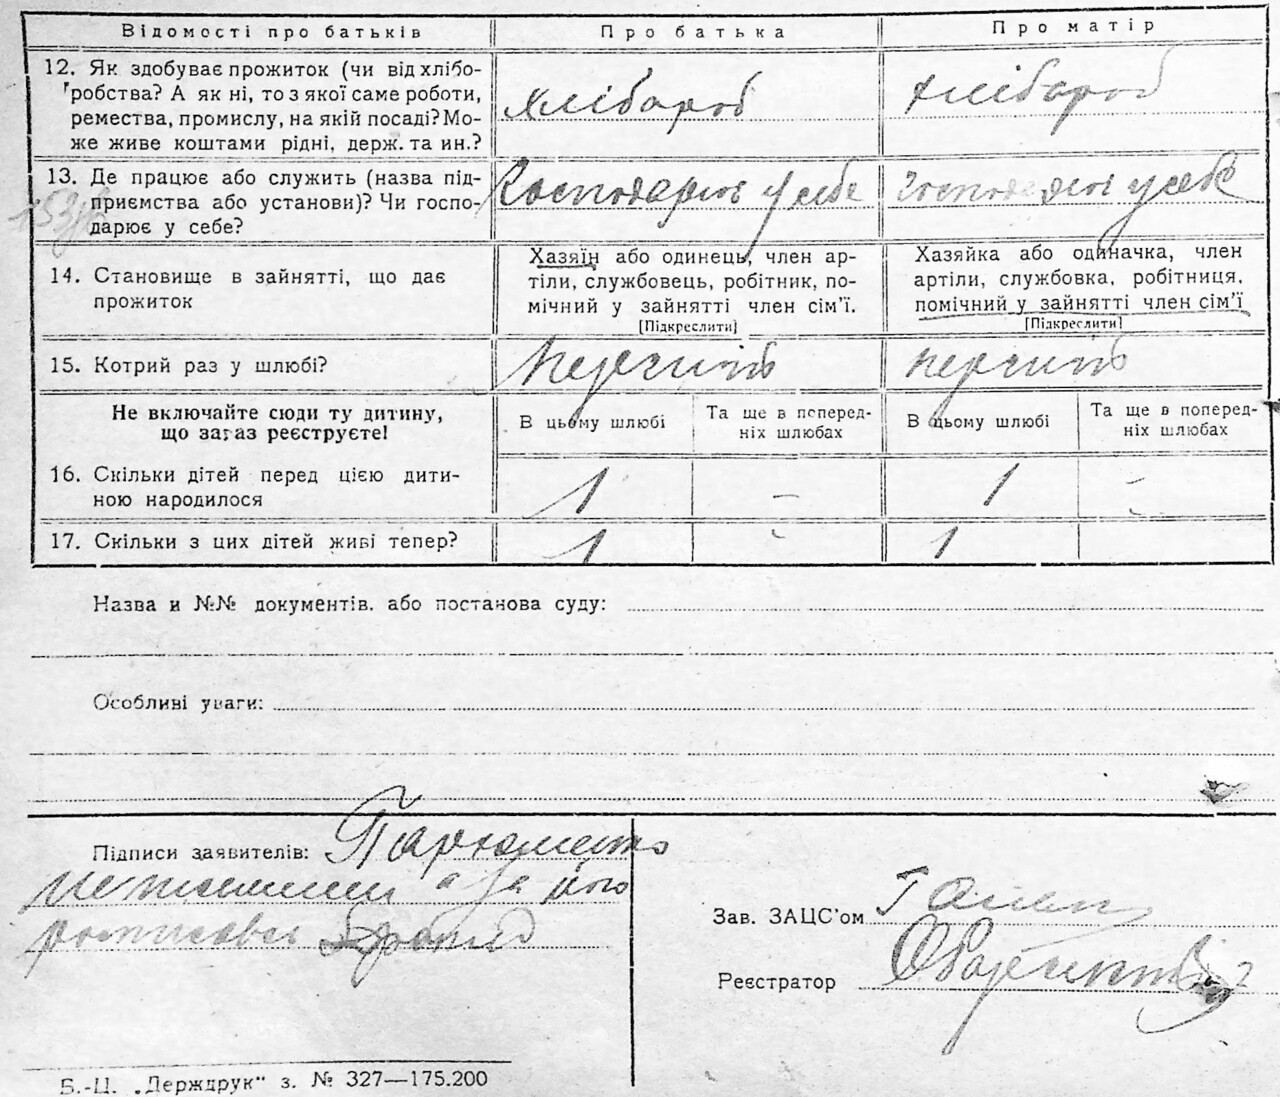 Відомості про батьків
Про батька
Про матір
12. Як здобуває прожиток (чи від хлібо-
робства? А як ні, то з якої саме роботи,
ремества, промислу, на якій посаді? Мо-
же живе коштами рідні, держ. та ин.?
хлібороб
хлібороб
13. Де працює або служить (назва під-
приємства або установи)? Чи госпо-
дарює у себе?
Господарює у себе
господарює у себе
14. Становище в зайнятті, що дає
прожиток
Хазяїн або одинець, член ар-
тіли, службовець, робітник, по-
мічний у зайнятті член сім'ї.
[Підкреслити]
Хазяйка або одиначка, член
артіли, службовка, робітниця,
помічний у зайнятті член сім'ї
[Підкреслити]
15. Котрий раз у шлюбі?
Не включайте сюди ту дитину,
що зараз реєструєте!
В цьому шлюбі
Та ще в поперед-
ніх шлюбах
В цьому шлюбі
Та ще в поперед-
ніх шлюбах
16. Скільки дітей перед цією дити-
ною народилося
1
–
1
–
17. Скільки з цих дітей живі тепер?
1
-
1
-
Назва и №№ документів. або постанова суду:
Особливі уваги:
Підписи заявителів:
а за його
росписавсь
Зав. ЗАЦС'ом
Реєстратор
Б.-Ц. „Держдрук" з. № 327—175.200